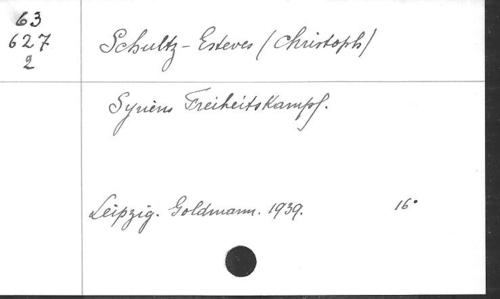 63
627
2
Schultz-Esteves (Christoph)
Syriens Freiheitskampf.
Leipzig. Goldmann. 1939. 16°